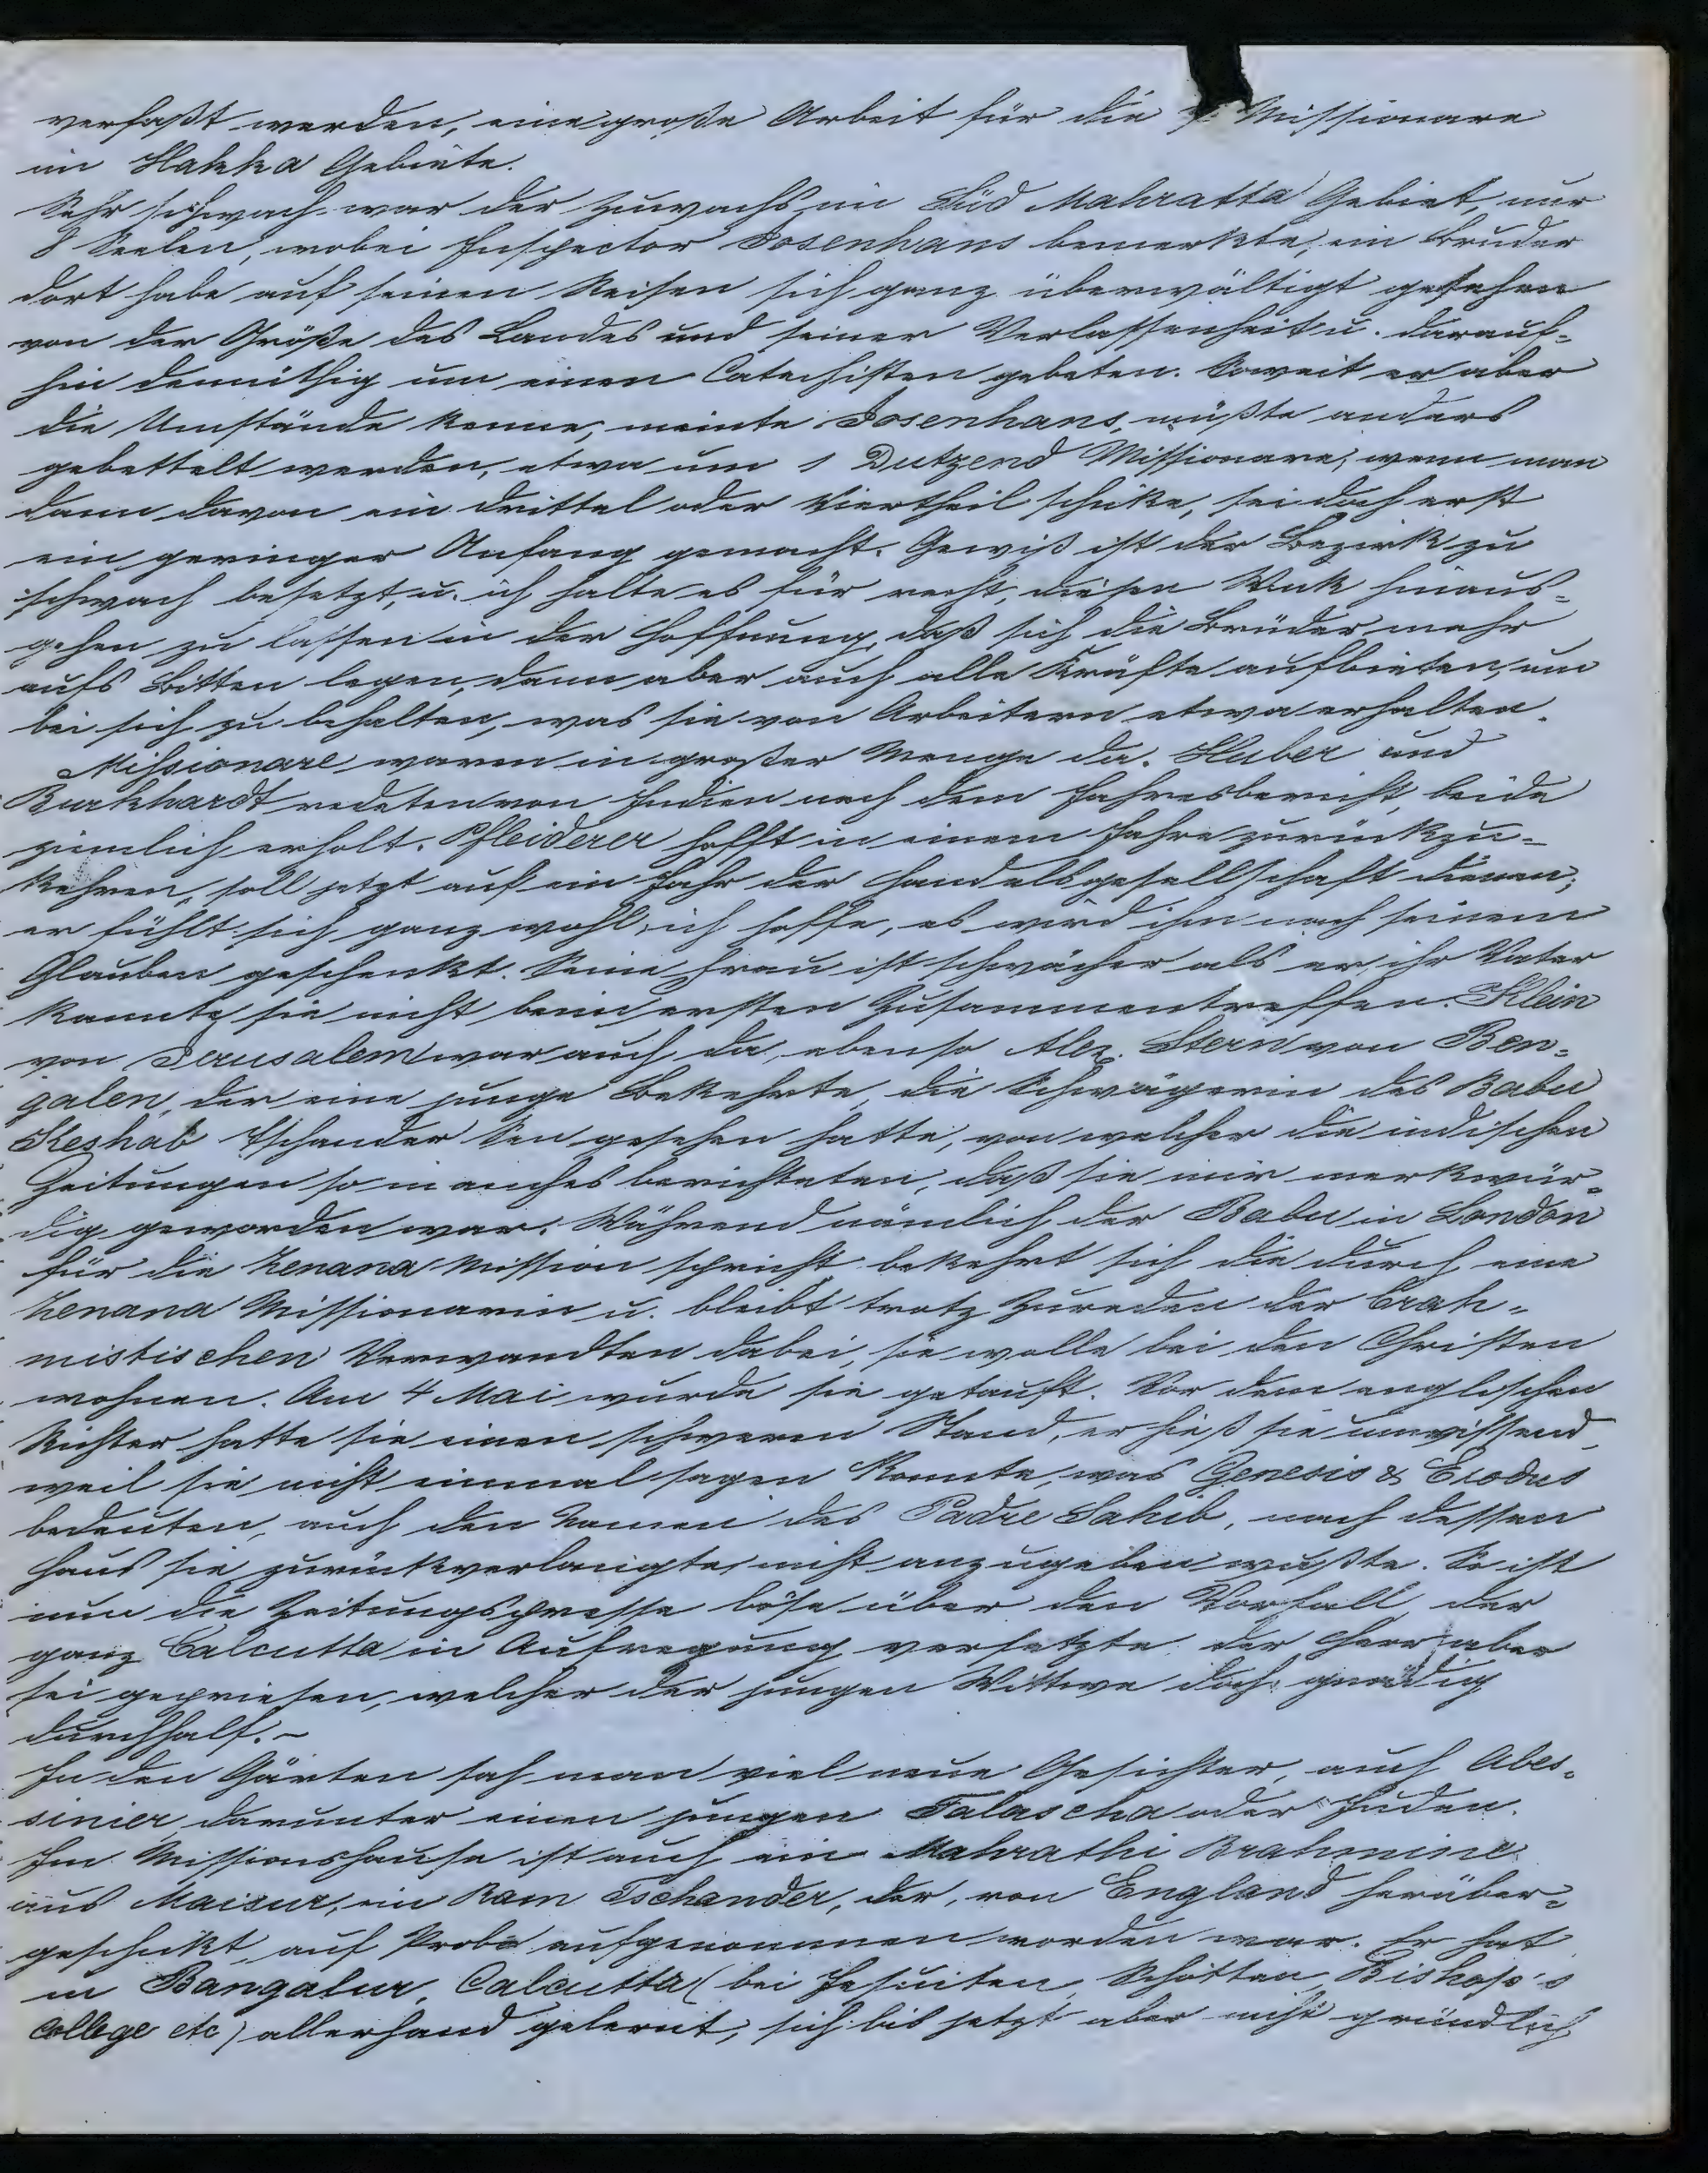 verfaßt werden, eine große Arbeit für die Missionare
im Hakka Gebiete.
Sehr schwach war der Zuwachs im Süd Mahratta Gebiet, nur
8 Seelen, wobei Inspector Josenhans bemerkte, ein Bruder
dort habe auf seinen Reisen sich ganz überwältigt gesehen
von der Größe des Landes und seiner Verlassenheit u. darauf-
hin demüthig um einen Catechisten gebeten. Soweit er aber
die Umstände kenne, meinte Josenhans, müßte anders
gebettelt werden, etwa um 1 Dutzend Missionare; wenn man
dann davon ein Drittel oder Viertheil schike, sei doch erst
ein geringer Anfang gemacht. Gewiß ist der Bezirk zu
schwach besetzt, u. ich halte es für recht, diesen Wink hinaus-
gehen zu lassen in der Hoffnung, daß sich die Brüder mehr
aufs Bitten legen, dann aber auch alle Kräfte aufbieten, um
bei sich zu behalten, was sie von Arbeitern etwa erhalten.
Missionare waren in großer Menge da. Huber und
Burkhardt redeten von Indien nach dem Jahresbericht, beide
ziemlich erholt. Pfleiderer hofft in einem Jahre zurückzu-
kehren, soll jetzt auf ein Jahr der Handelsgesellschaft dienen;
er fühlt sich ganz wohl, ich hoffe, es wird ihm nach seinem
Glauben geschenkt. Seine Frau ist schwächer als er, ihr Vater
kannte sie nicht beim ersten Zusammentreffen. Klein
von Jerusalem war auch da, ebenso Alex. Stern von Ben-
galen, der eine junge Bekehrte, die Schwägerin des Babu
Keshab Tschander Sen gesehen hatte, von welcher die indischen
Zeitungen so manches berichteten, daß sie mir merkwür-
dig geworden war. Während nämlich der Babu in London
für die Zenana Mission spricht bekehrt sich die durch eine
Zenana Missionarin u. bleibt trotz Zureden der brah-
mistischen Verwandten dabei, sie wolle bei den Christen
wohnen. Am 4 Mai wurde sie getauft. Vor dem englischen
Richter hatte sie einen schweren Stand, er hieß sie unwissend,
weil sie nicht einmal sagen konnte, was Genesis & Exodus
bedeuten, auch den Namen des Padre Sahib, nach dessen
Haus sie zurückverlangte, nicht anzugeben wußte. So ist
nun die Zeitungspresse böse über den Vorfall, der
ganz Calcutta in Aufregung versetzte, der Herr aber
sei gepriesen, welcher der jungen Wittwe doch gnädig
durchhalf. –
In den Gärten sah man viel neue Gesichter, auch Abes-
sinier, darunter einen jungen Falascha oder Juden.
Im Missionshause ist auch ein Mahrathi Brahmine
aus Maisur, ein Ram Tschander, der, von England herüber-
geschikt, auf Probe aufgenommen worden war. Er hat
in Bangalur, Calcutta (bei Jesuiten, Schotten, Bishop's
College etc) allerhand gelernt, sich bis jetzt aber nicht gründlich